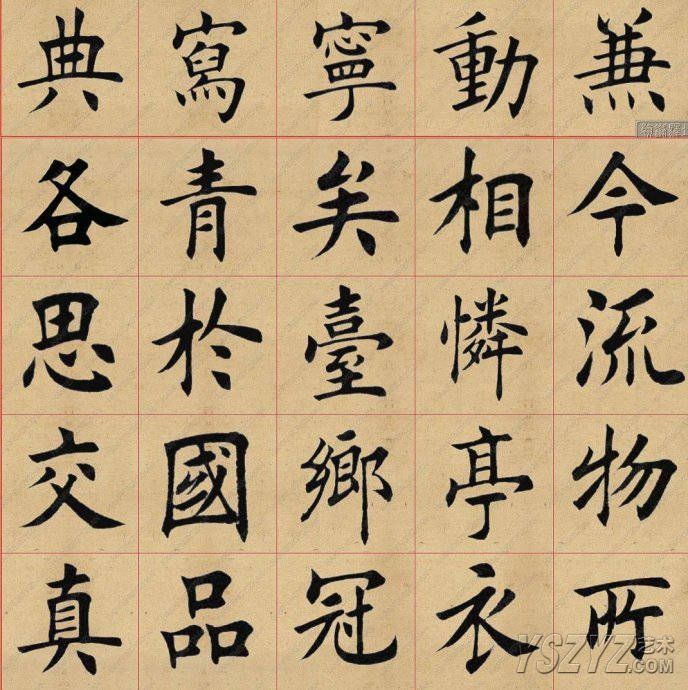 典寫寧動兼
各青矣相今
思於臺憐流
交國鄉亭物
真品冠衣所
YSZYZ艺术
.COM